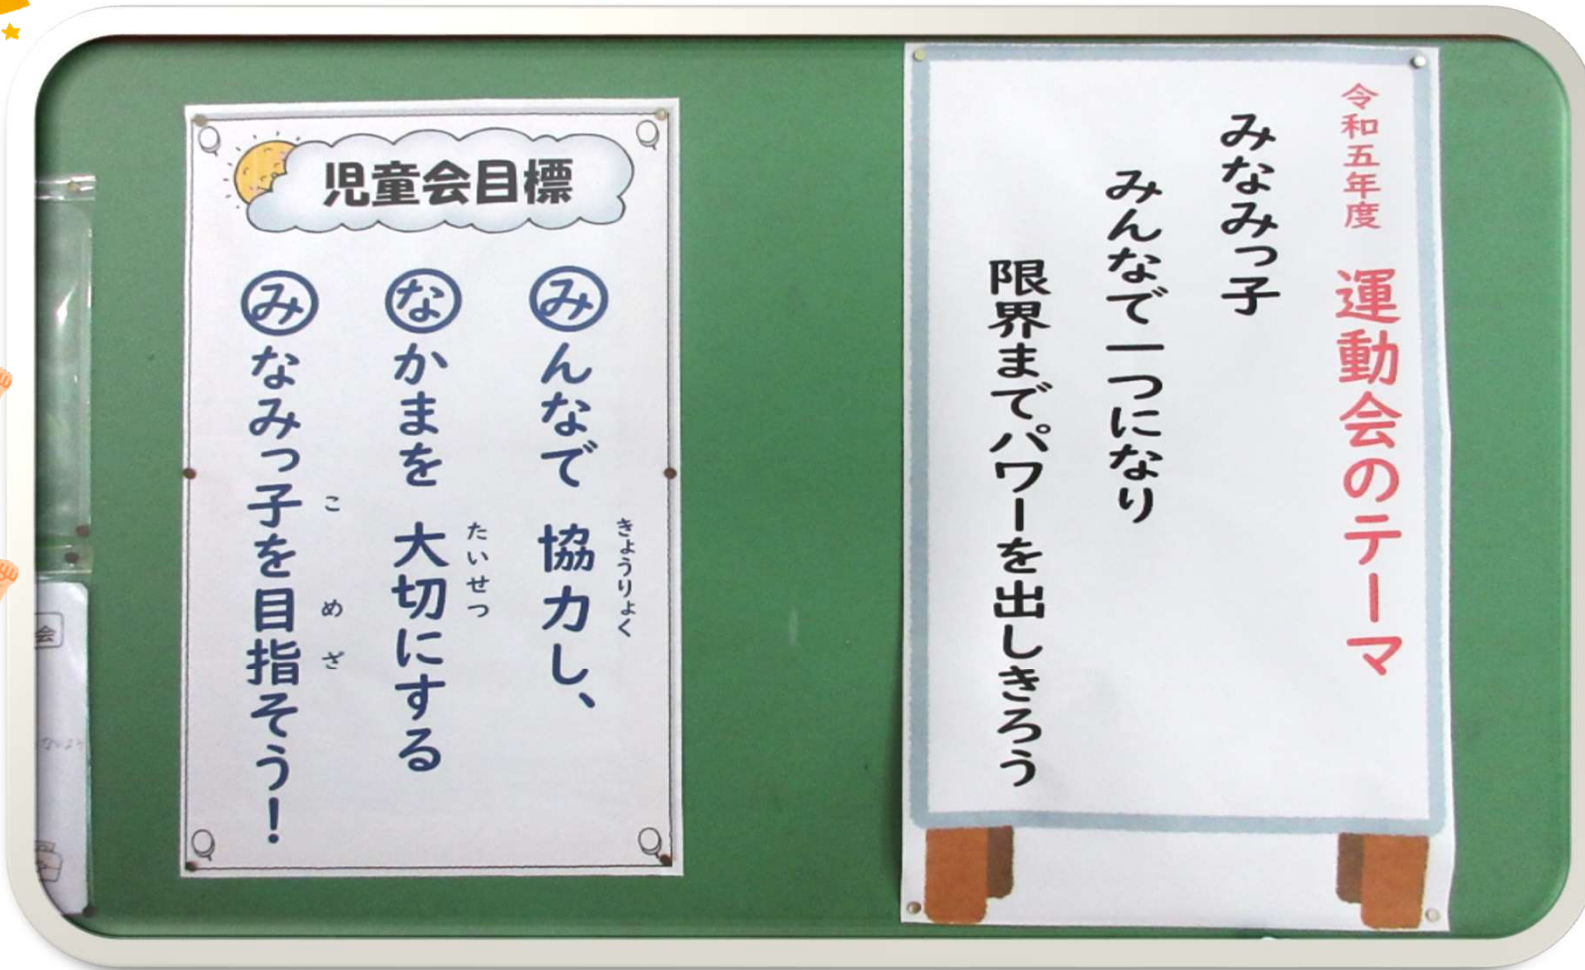 令和五年度 運動会のテーマ
みなみっ子
みんなで一つになり
限界までパワーを出しきろう
児童会目標
みんなで 協力し、
きょうりょく
なかまを 大切にする
たいせつ
みなみっ子を目指そう!
こ め ざ
会